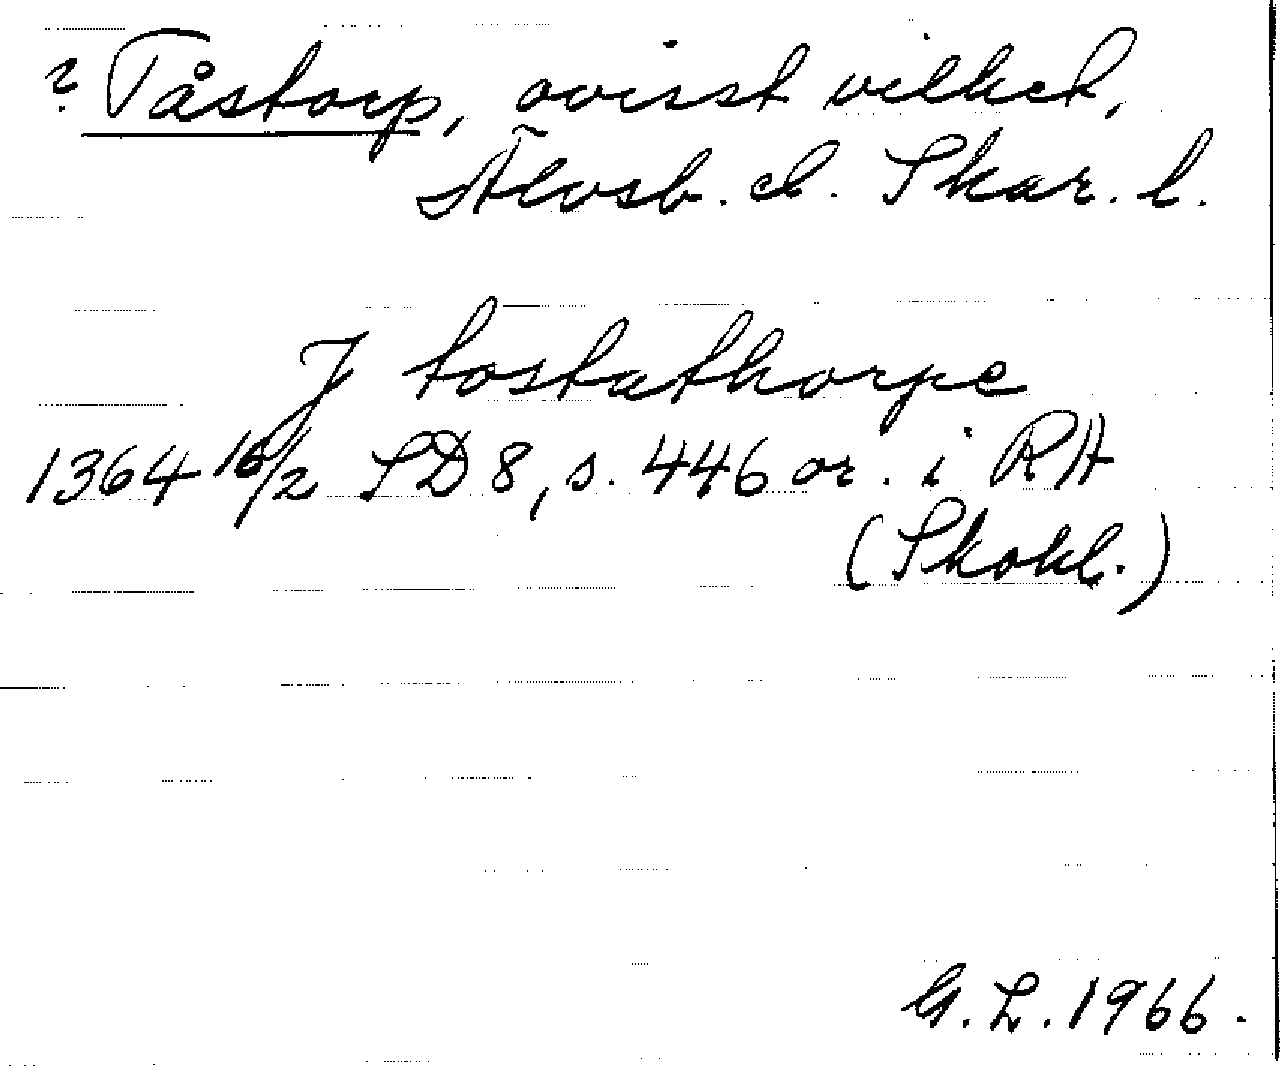 ? Tåstorp, ovisst vilket,
Älvsb. el. Skar. l.
J tostathorpe
1364 16/2 SD 8, s. 446 or. i RA
(Skokl.)
G. L. 1966.